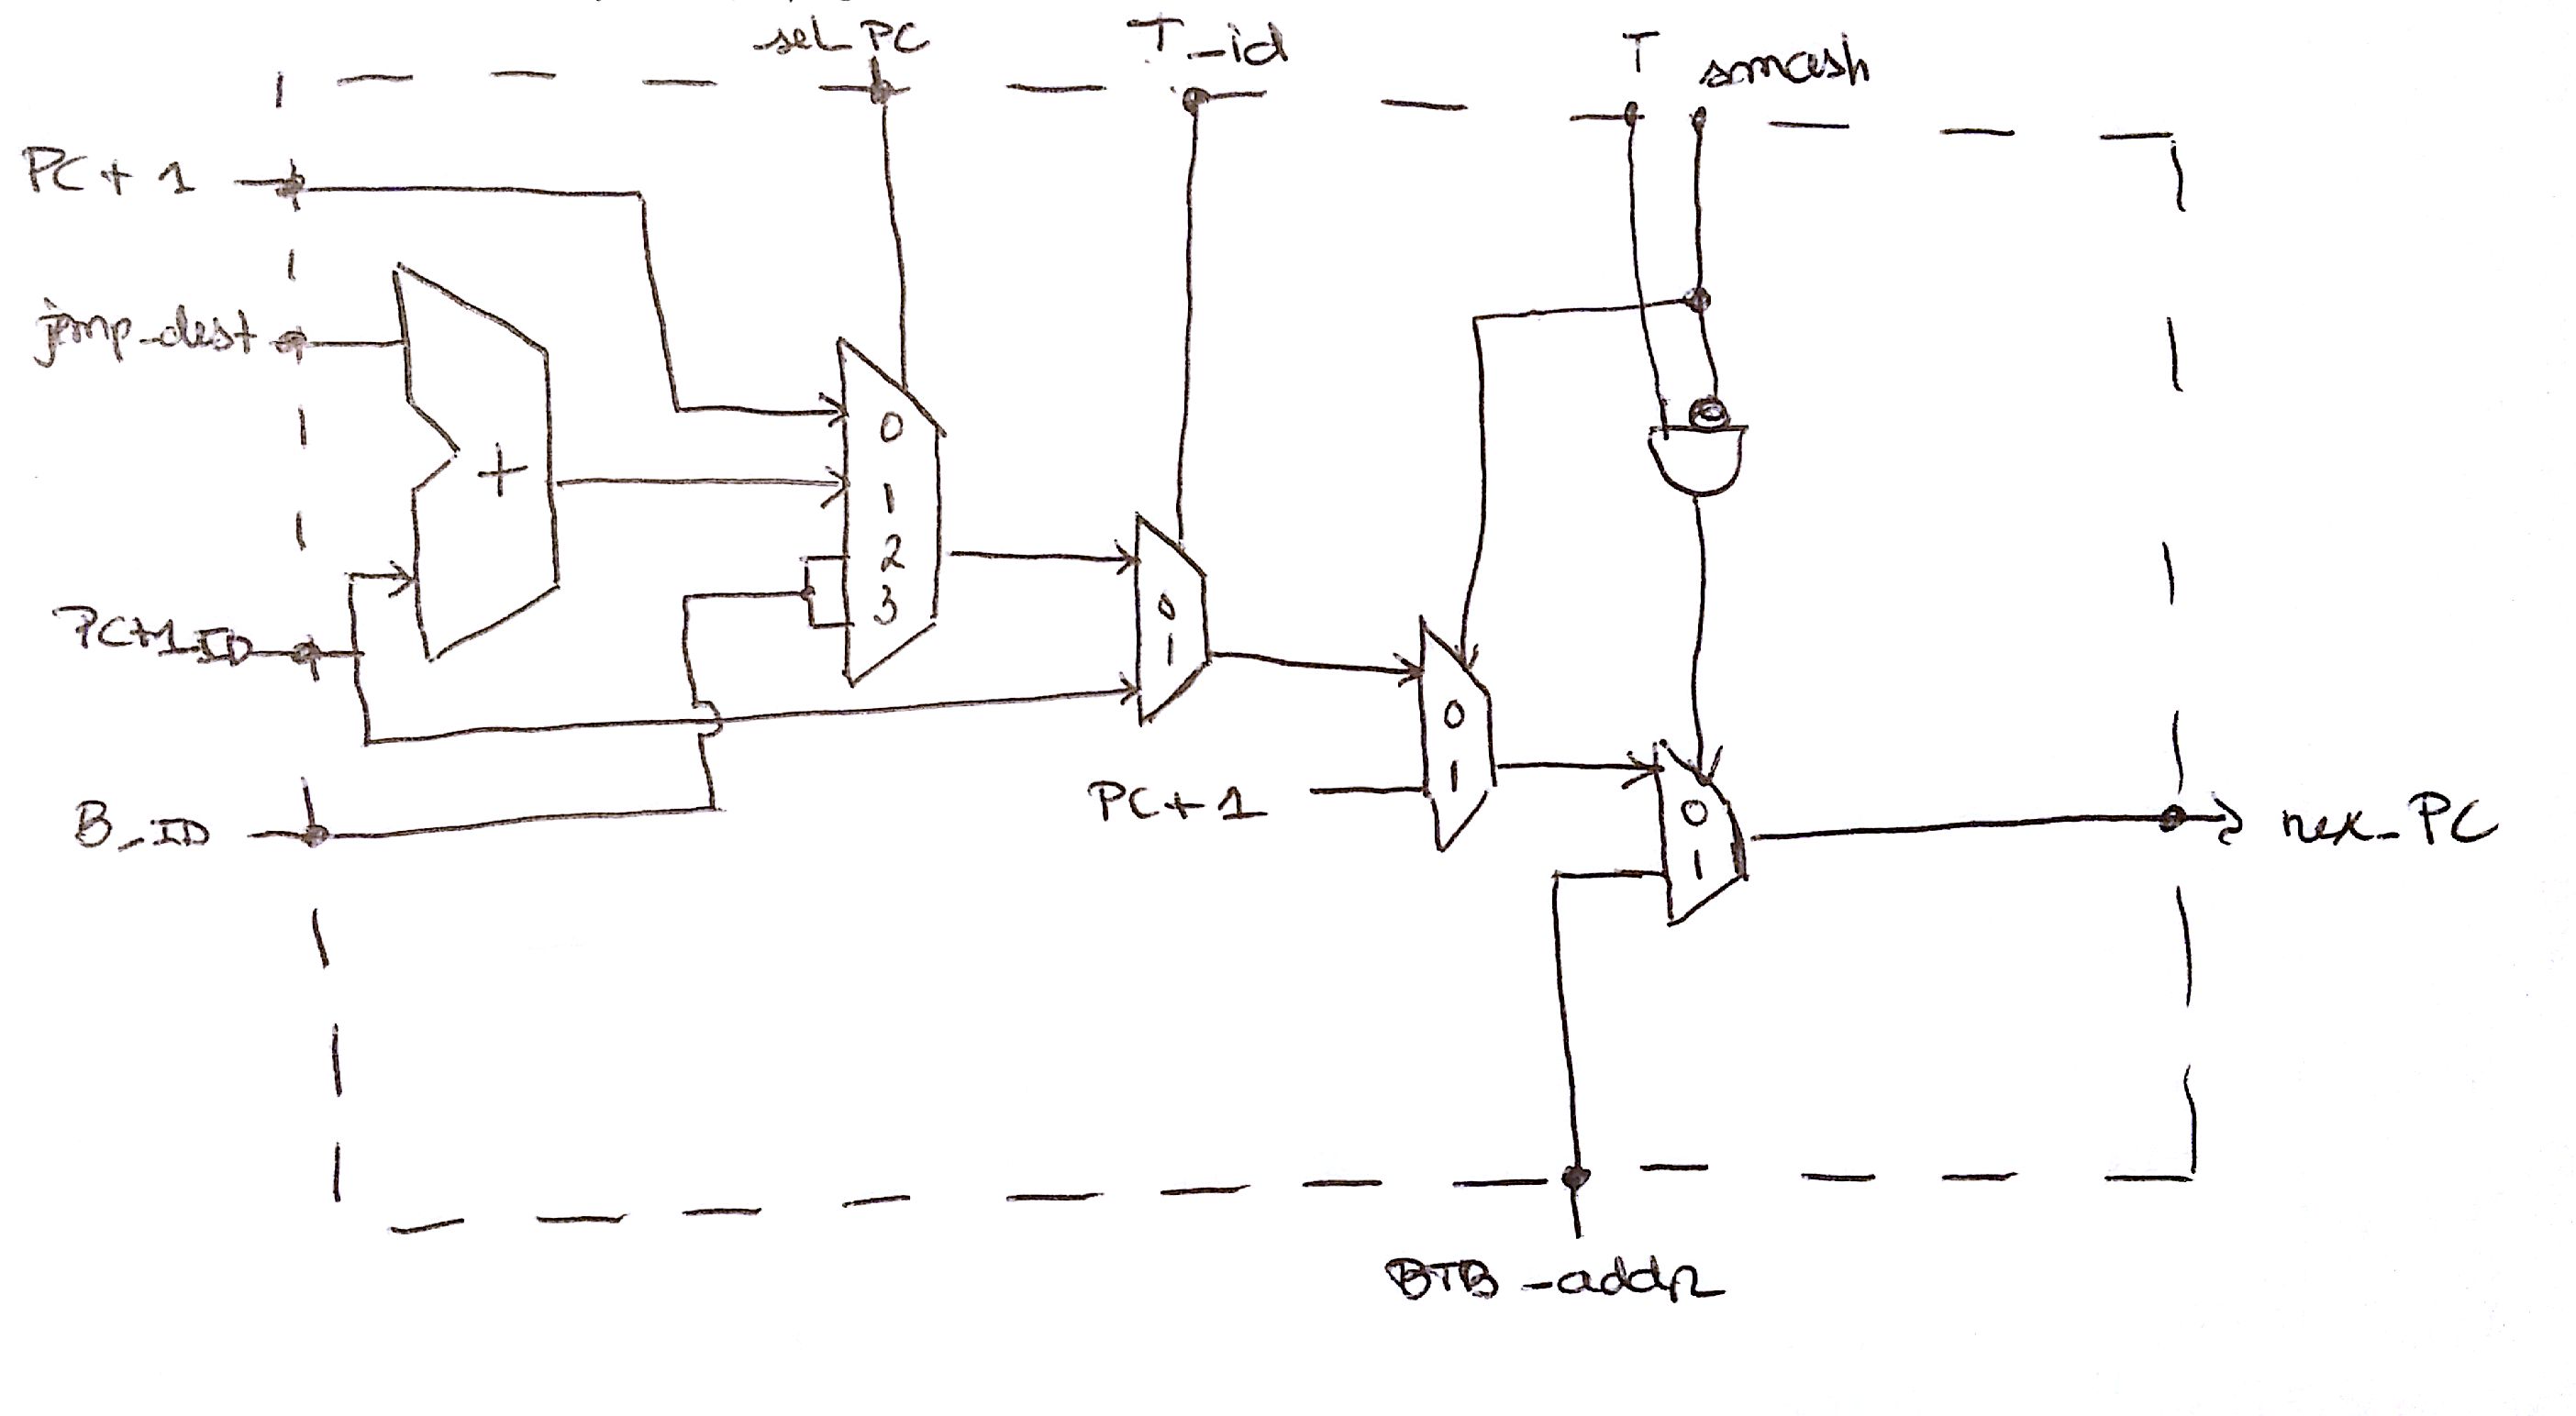 sel_PC
T_id
T
smash
PC+1
jmp_dest
+
0
1
2
3
PC+1_ID
0
1
0
1
PC+1
B_ID
0
1
nex_PC
BTB_addr